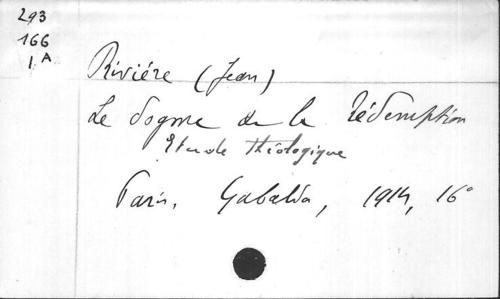 293
166
1.A
Rivière (Jean)
Le dogme de la Rédemption
Etude théologique
Paris, Gabalda, 1914, 16°